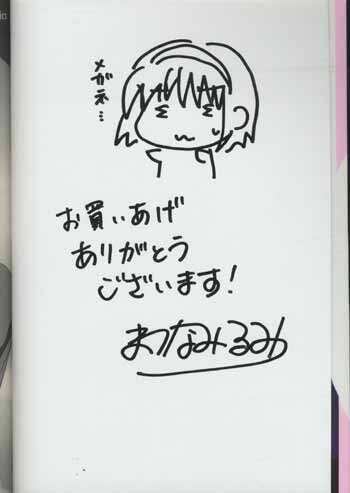 メガネ…
お買いあげ
ありがとう
ございます!
まつなみるみ